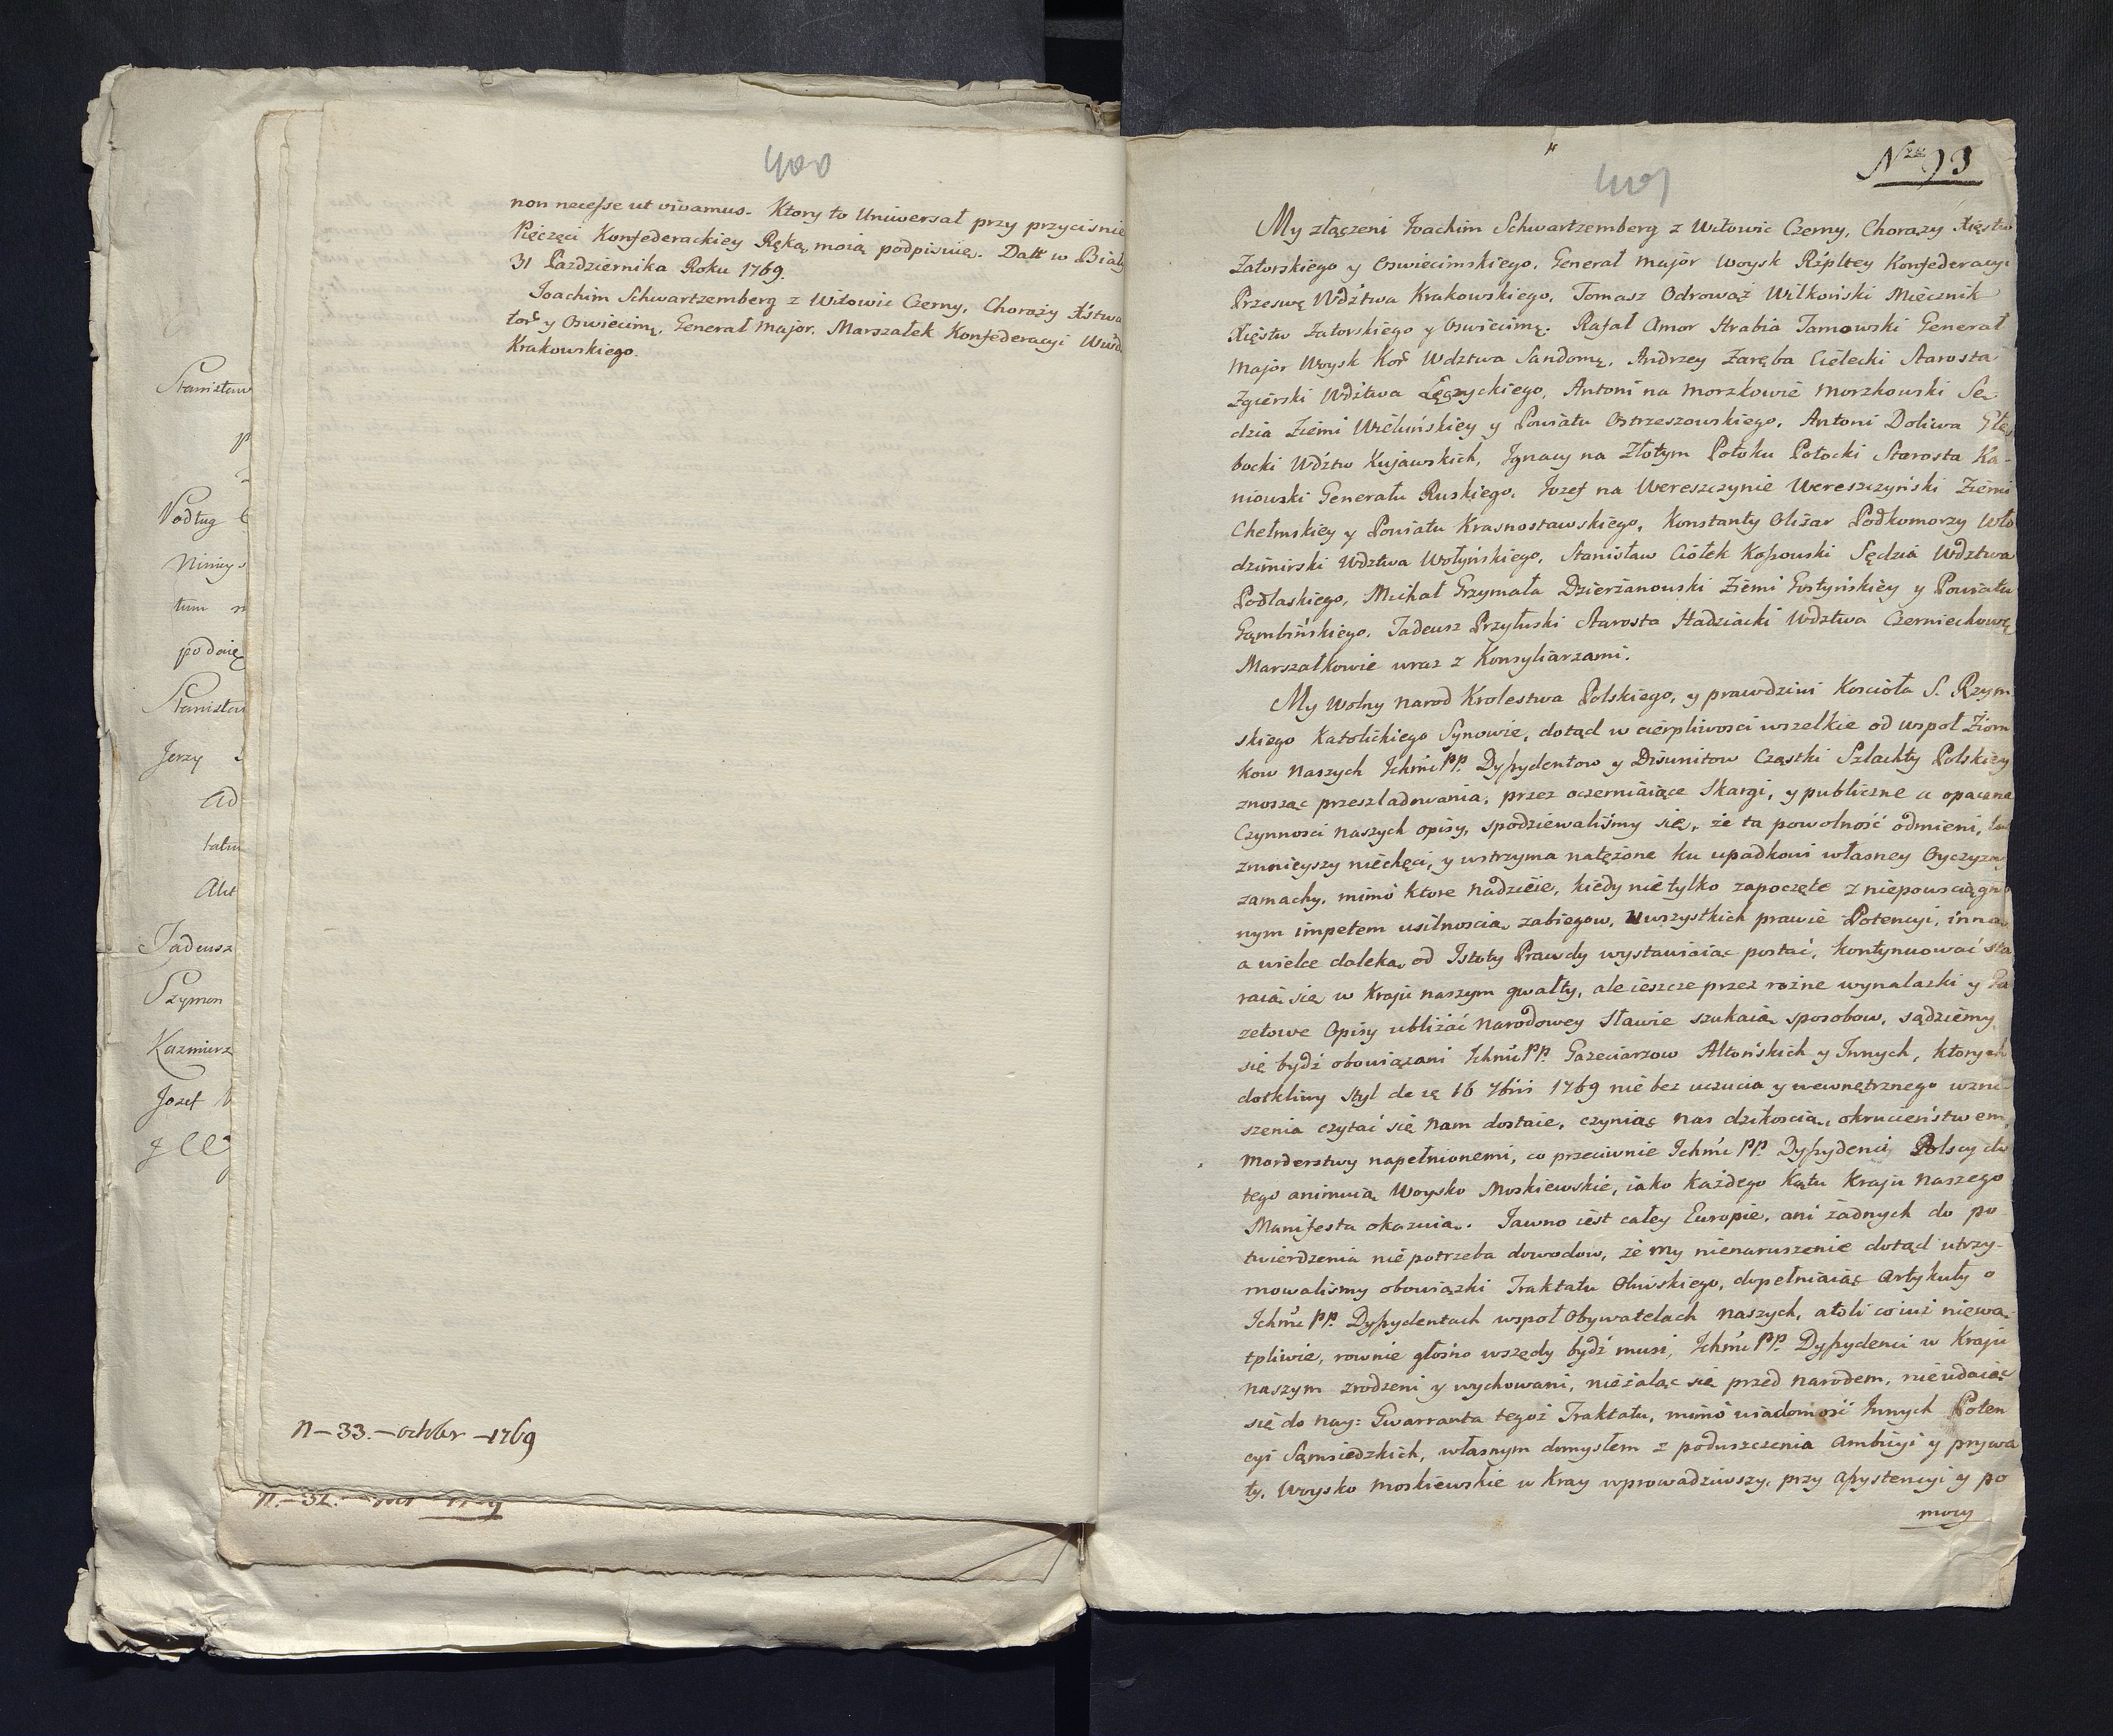 Stanisław
Podług
Nimiys
tum
podaię
Stanisław
Jerzy
ad
tatum
Akt
Tadeusz
Szymon
Kazmierz
Jozef
400
non necesse ut vivamus. Ktory to Uniwersał przy przycisnie
Pięczęci Konfederackiey Ręką moią podpisuię. Datt w Biały
31 Pazdziernika Roku 1769.
Joachim Schwartzemberg z Witowic Czerny, Chorąży Xśtwa
tor y Oswiecimę, General Major, Marszałek Konfederacyi Wwd.
Krakowskiego.
n-33.-octobr-1769
n.-32.
401
Nro 93
My złączeni Joachim Schwartzemberg z Witowic Czerny, Chorąży Xięstw
Zatorskiego y Oswiecimskiego, Generał Major Woysk Rzpltey Konfederacyi
Przeswę Wdztwa Krakowskiego, Tomasz Odrowąż Wilkoński Miecznik
Xięstw Zatorskiego y Oswiecimę. Rafał Amor Hrabia Tarnowski Generał
Major Woysk Kor Wdztwa Sandomę, Andrzey Zaręba Cielecki Starosta
Zgierski Wdztwa Łęczyckiego, Antoni na Morzkowie Morzkowski Sę
dzia Ziemi Wieluńskiey y Powiatu Ostrzeszowskiego, Antoni Doliwa Głę
bocki Wdztw Kujawskich, Ignacy na Złotym Potoku Potocki Starosta Ka-
niowski Generału Ruskiego, Jozef na Wereszczynie Wereszczyński Ziemi
Chełmskiey y Powiatu Krasnostawskiego, Konstanty Olizar Podkomorzy Wło
dzimirski Wdztwa Wołyńskiego, Stanisław Ciołek Kossowski Sędzia Wdztwa
Podlaskiego, Michał Grzymała Dzierżanowski Ziemi Gostyńskiey y Powiatu
Gąmbińskiego, Tadeusz Przyłuski Starosta Hadziacki Wdztwa Czerniechowę
Marszałkowie wraz z Konsyliarzami.
My Wolny Narod Krolestwa Polskiego, y prawdziwi Kościoła S. Rzym
skiego Katolickiego Synowie, dotąd w cierpliwosci wszelkie od wspoł Ziom
kow Naszych Ichmć PP. Dyssydentow y Disunitow Cząstki Szlachty Polskiey
znosząc przesladowania, przez oczerniaiące Skargi, y publiczne a opaczne
Czynnosci naszych opisy, spodziewaliśmy się, że ta powolność odmieni, lub
zmnieyszy niechęci, y wstrzyma natężone ku upadkowi własney Oyczyzny
zamachy, mimo ktore nadzieie, kiedy nie tylko zapoczęte z niepowsciągnio
nym impetem usilnoscią zabiegow, u wszystkich prawie Potencyi, inną
a wielce daleką od Istoty Prawdy wystawiaiąc postać, kontynuować sta
raią się w Kraju naszym gwałty, ale ieszcze przez rożne wynalazki y Ga
zetowe Opisy ubliżać Narodowey Sławie szukaią sposobow, sądziemy
się bydź obowiązani Ichmć PP. Gazeciarzow Altońskich y Innych, ktorych
dotkliwy Styl de 16 7bris 1769 nie bez uczucia y wewnętrznego wzru-
szenia czytać się Nam dostaie, czyniąc Nas dzikoscią, okrucieństwem,
Morderstwy napełnionemi, co przeciwnie Ichmć PP. Dyssydenci Polscy do
tego animuią Woysko Moskiewskie, iako każdego Kątu Kraju Naszego
Manifesta okazuią. Jawno iest całey Europie, ani żadnych do po
twierdzenia nie potrzeba dowodow, że My nienaruszenie dotąd utrzy-
mowalismy obowiązki Traktatu Oliwskiego, dopełniaiąc Artykuły o
Ichmć PP. Dyssydentach wspoł Obywatelach naszych, atoli co iuż niewą-
tpliwie, rownie głośno wszędy bydź musi, Ichmć PP. Dyssydenci w Kraju
naszym zrodzeni y wychowani, nieżaląc się przed narodem, nieudaiąc
się do Nay: Gwarranta tegoż Traktatu, mimo wiadomość Innych Poten
cyi Sąmsiedzkich, własnym domysłem z poduszczenia Ambicyi y prywa
ty, Woysko Moskiewskie w Kray wprowadziwszy, przy Assystencyi y po
mocy